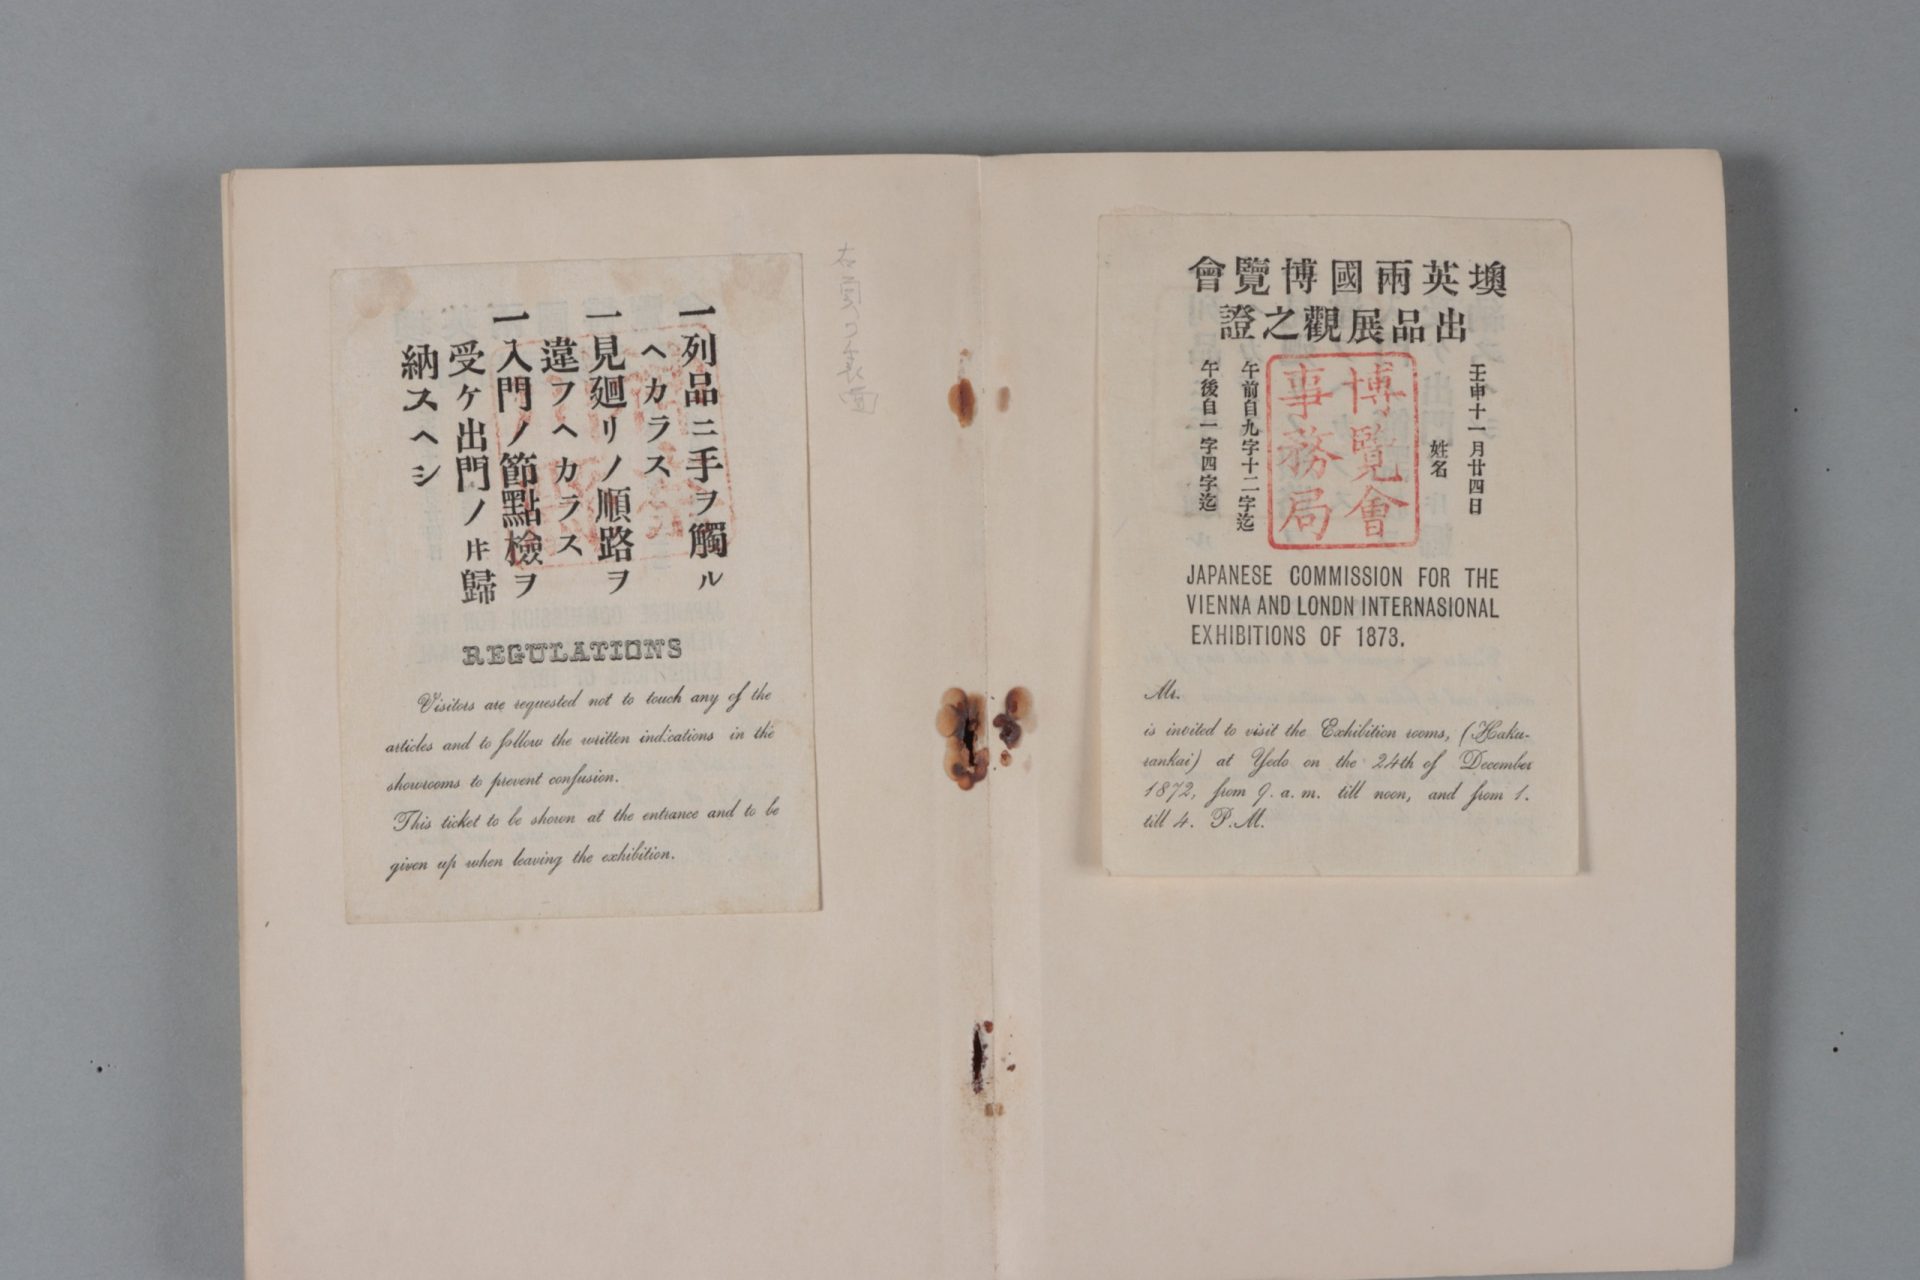 墺英兩國博覽會
出品展觀之證
壬申十一月廿四日
姓名
博覽會
事務局
午前自九字十二字迄
午後自一字四字迄
JAPANESE COMMISSION FOR THE
VIENNA AND LONDN INTERNASIONAL
EXHIBITIONS OF 1873.
Mr.
is invited to visit the Exhibition rooms, (Haku-
rankai) at Yedo on the 24th of December
1872, from 9. a. m. till noon, and from 1.
till 4. P. M.
一列品ニ手ヲ觸ル
ヘカラス
一見廻リノ順路ヲ
違フヘカラス
一入門ノ節點檢ヲ
受ケ出門ノトキ歸
納スヘシ
REGULATIONS
Visitors are requested not to touch any of the
articles and to follow the written indications in the
showrooms to prevent confusion.
This ticket to be shown at the entrance and to be
given up when leaving the exhibition.